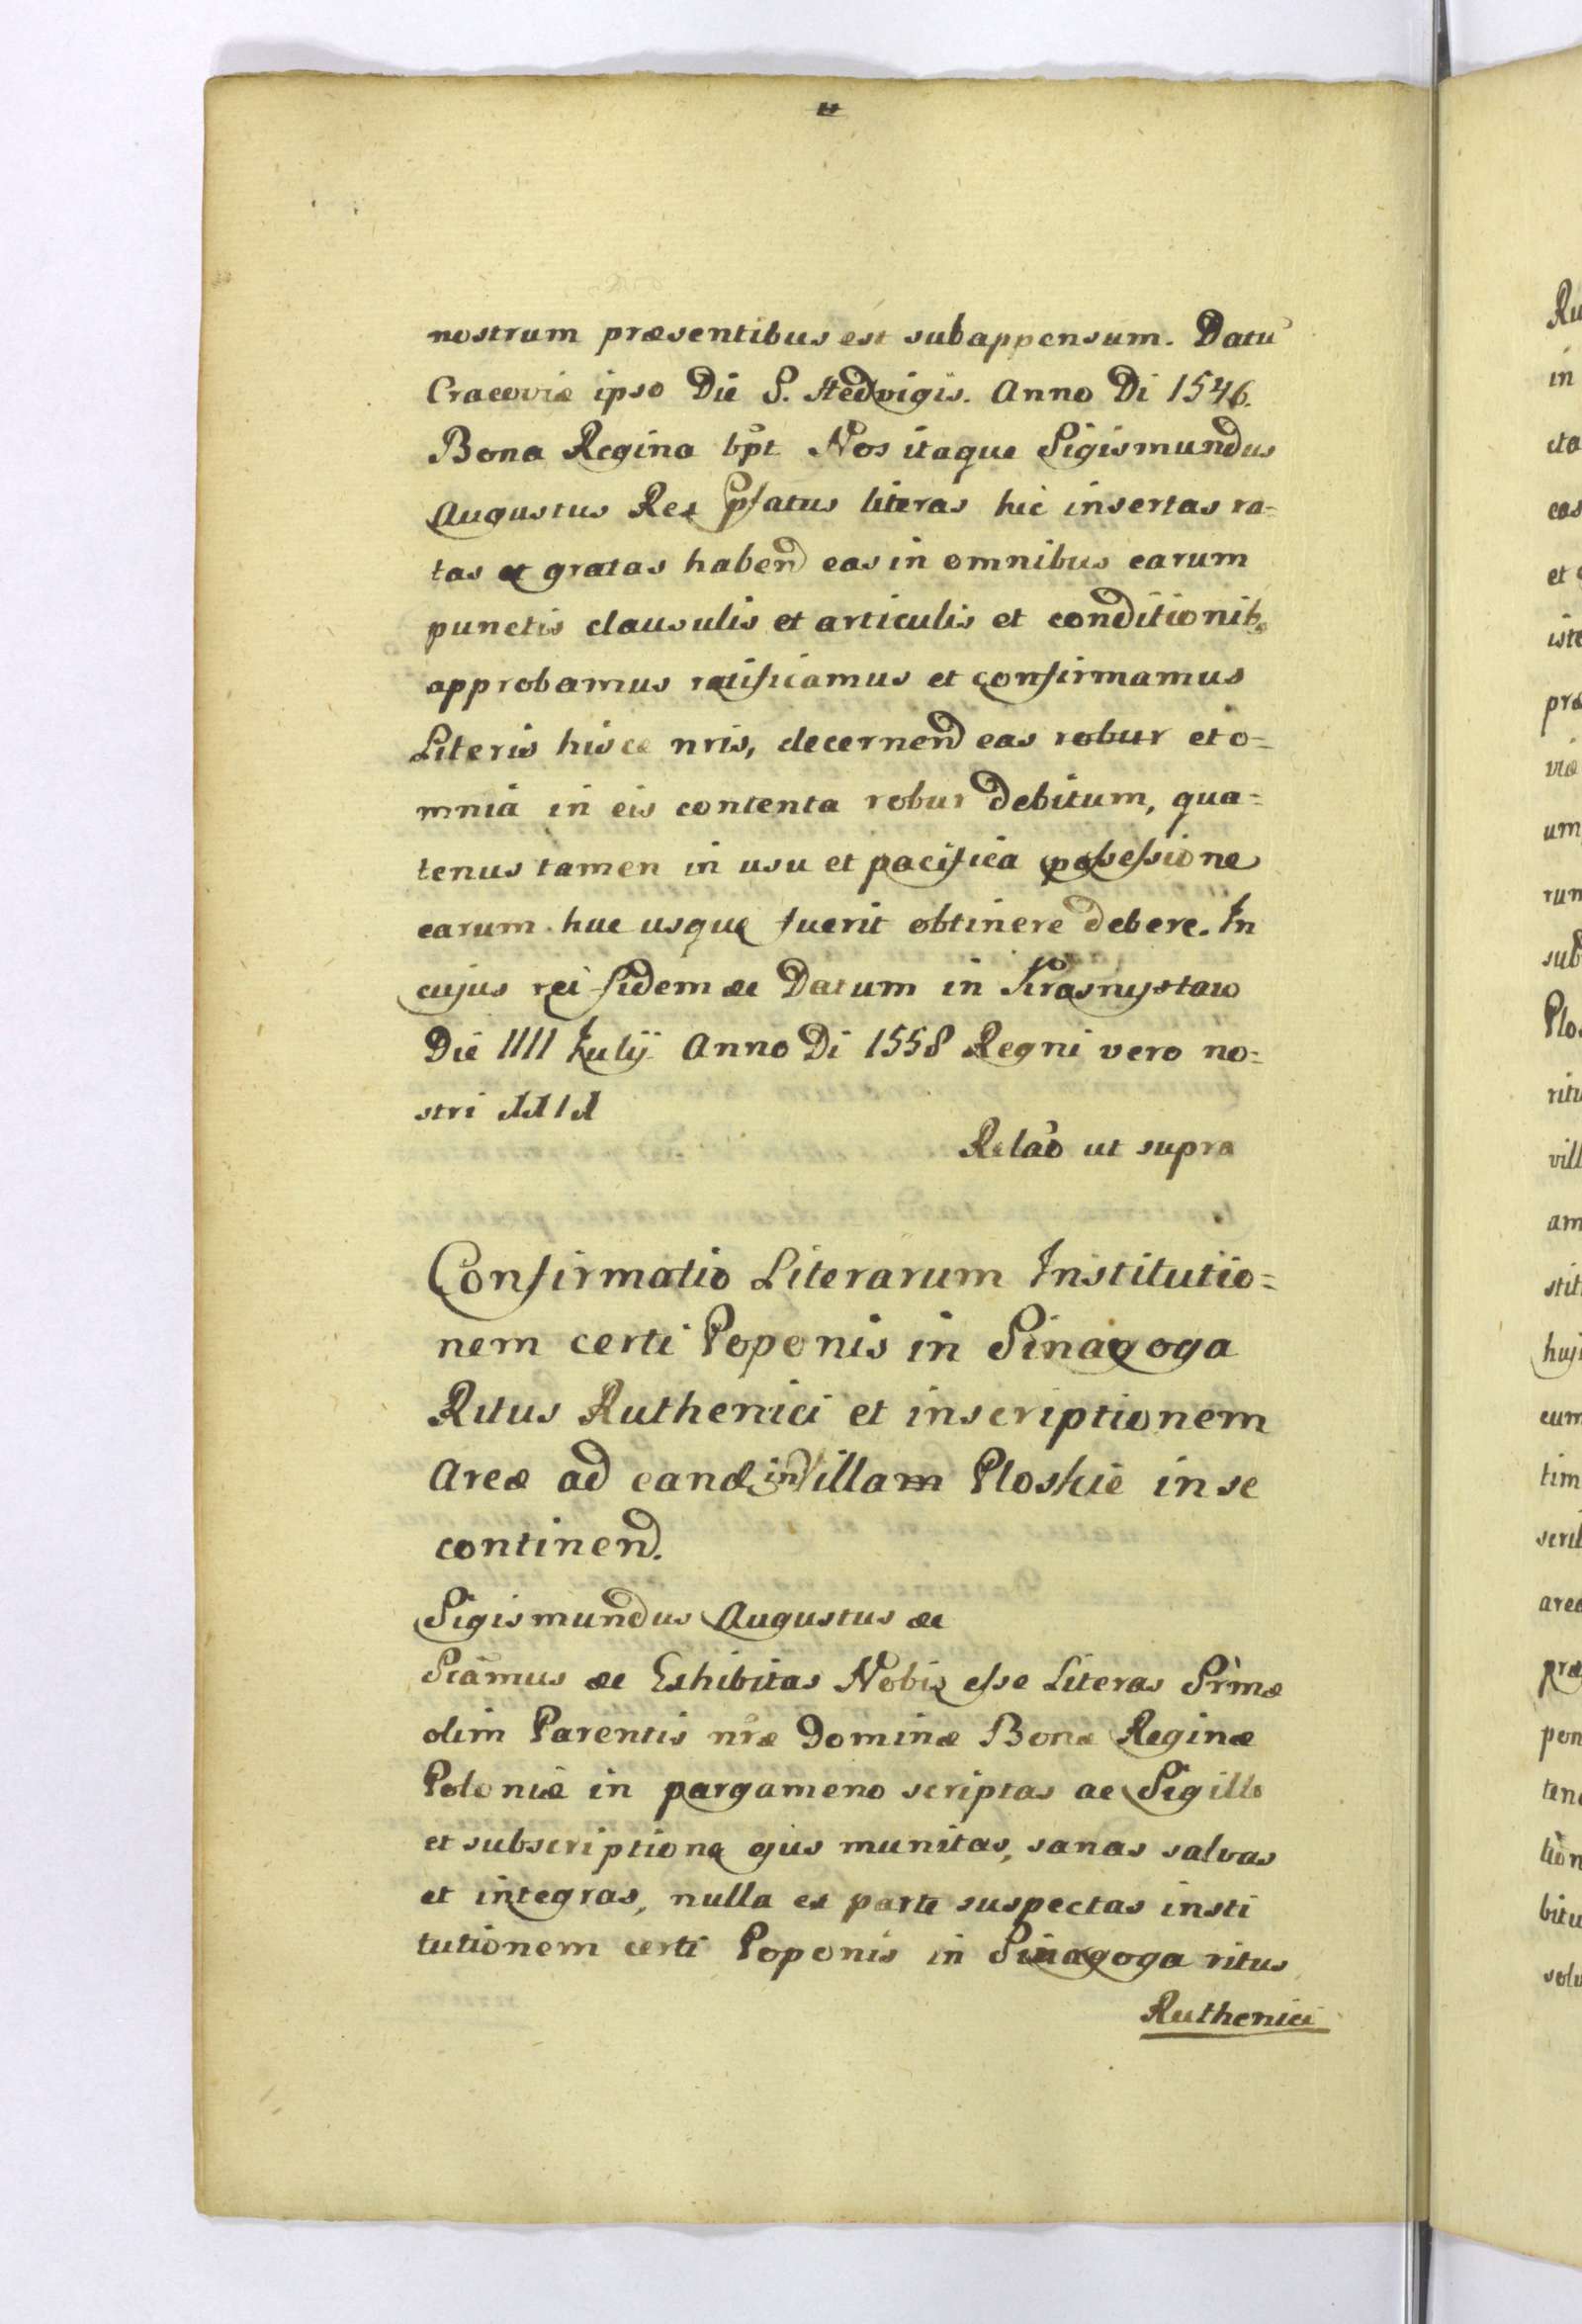 nostrum præsentibus est subappensum. Datu
Cracoviæ ipso Die S. Hedvigis. Anno Di 1546.
Bona Regina spt Nos itaque Sigismundus
Augustus Rex pfatus literas hic insertas ra=
tas et gratas habend eas in omnibus earum
punctis clausulis et articulis et conditionib,
approbamus ratificamus et confirmamus
Literis hisce nris, decernend eas robur et o=
mnia in eis contenta robur debitum, qua=
tenus tamen in usu et pacifica possessione
earum huc usque fuerit obtinere debere. In
cujus rei fidem &c Datum in Krasnystaw
Die IIII Julij Anno Di 1558 Regni vero no=
stri XXIX
Relao ut supra
Confirmatio Literarum Institutio=
nem certi Poponis in Sinagoga
Ritus Ruthenici et inscriptionem
Areæ ad eand in Villam Ploskie in se
continend.
Sigismundus Augustus &c
Sciamus &c Exhibitas Nobis esse Literas Srmæ
olim Parentis nræ Dominæ Bonæ Reginæ
Poloniæ in pargameno scriptas ac Sigillo
et subscriptione ejus munitas, sanas salvas
et integras, nulla ex parte suspectas insti
tutionem certi Poponis in Sinagoga ritus
Ruthenici